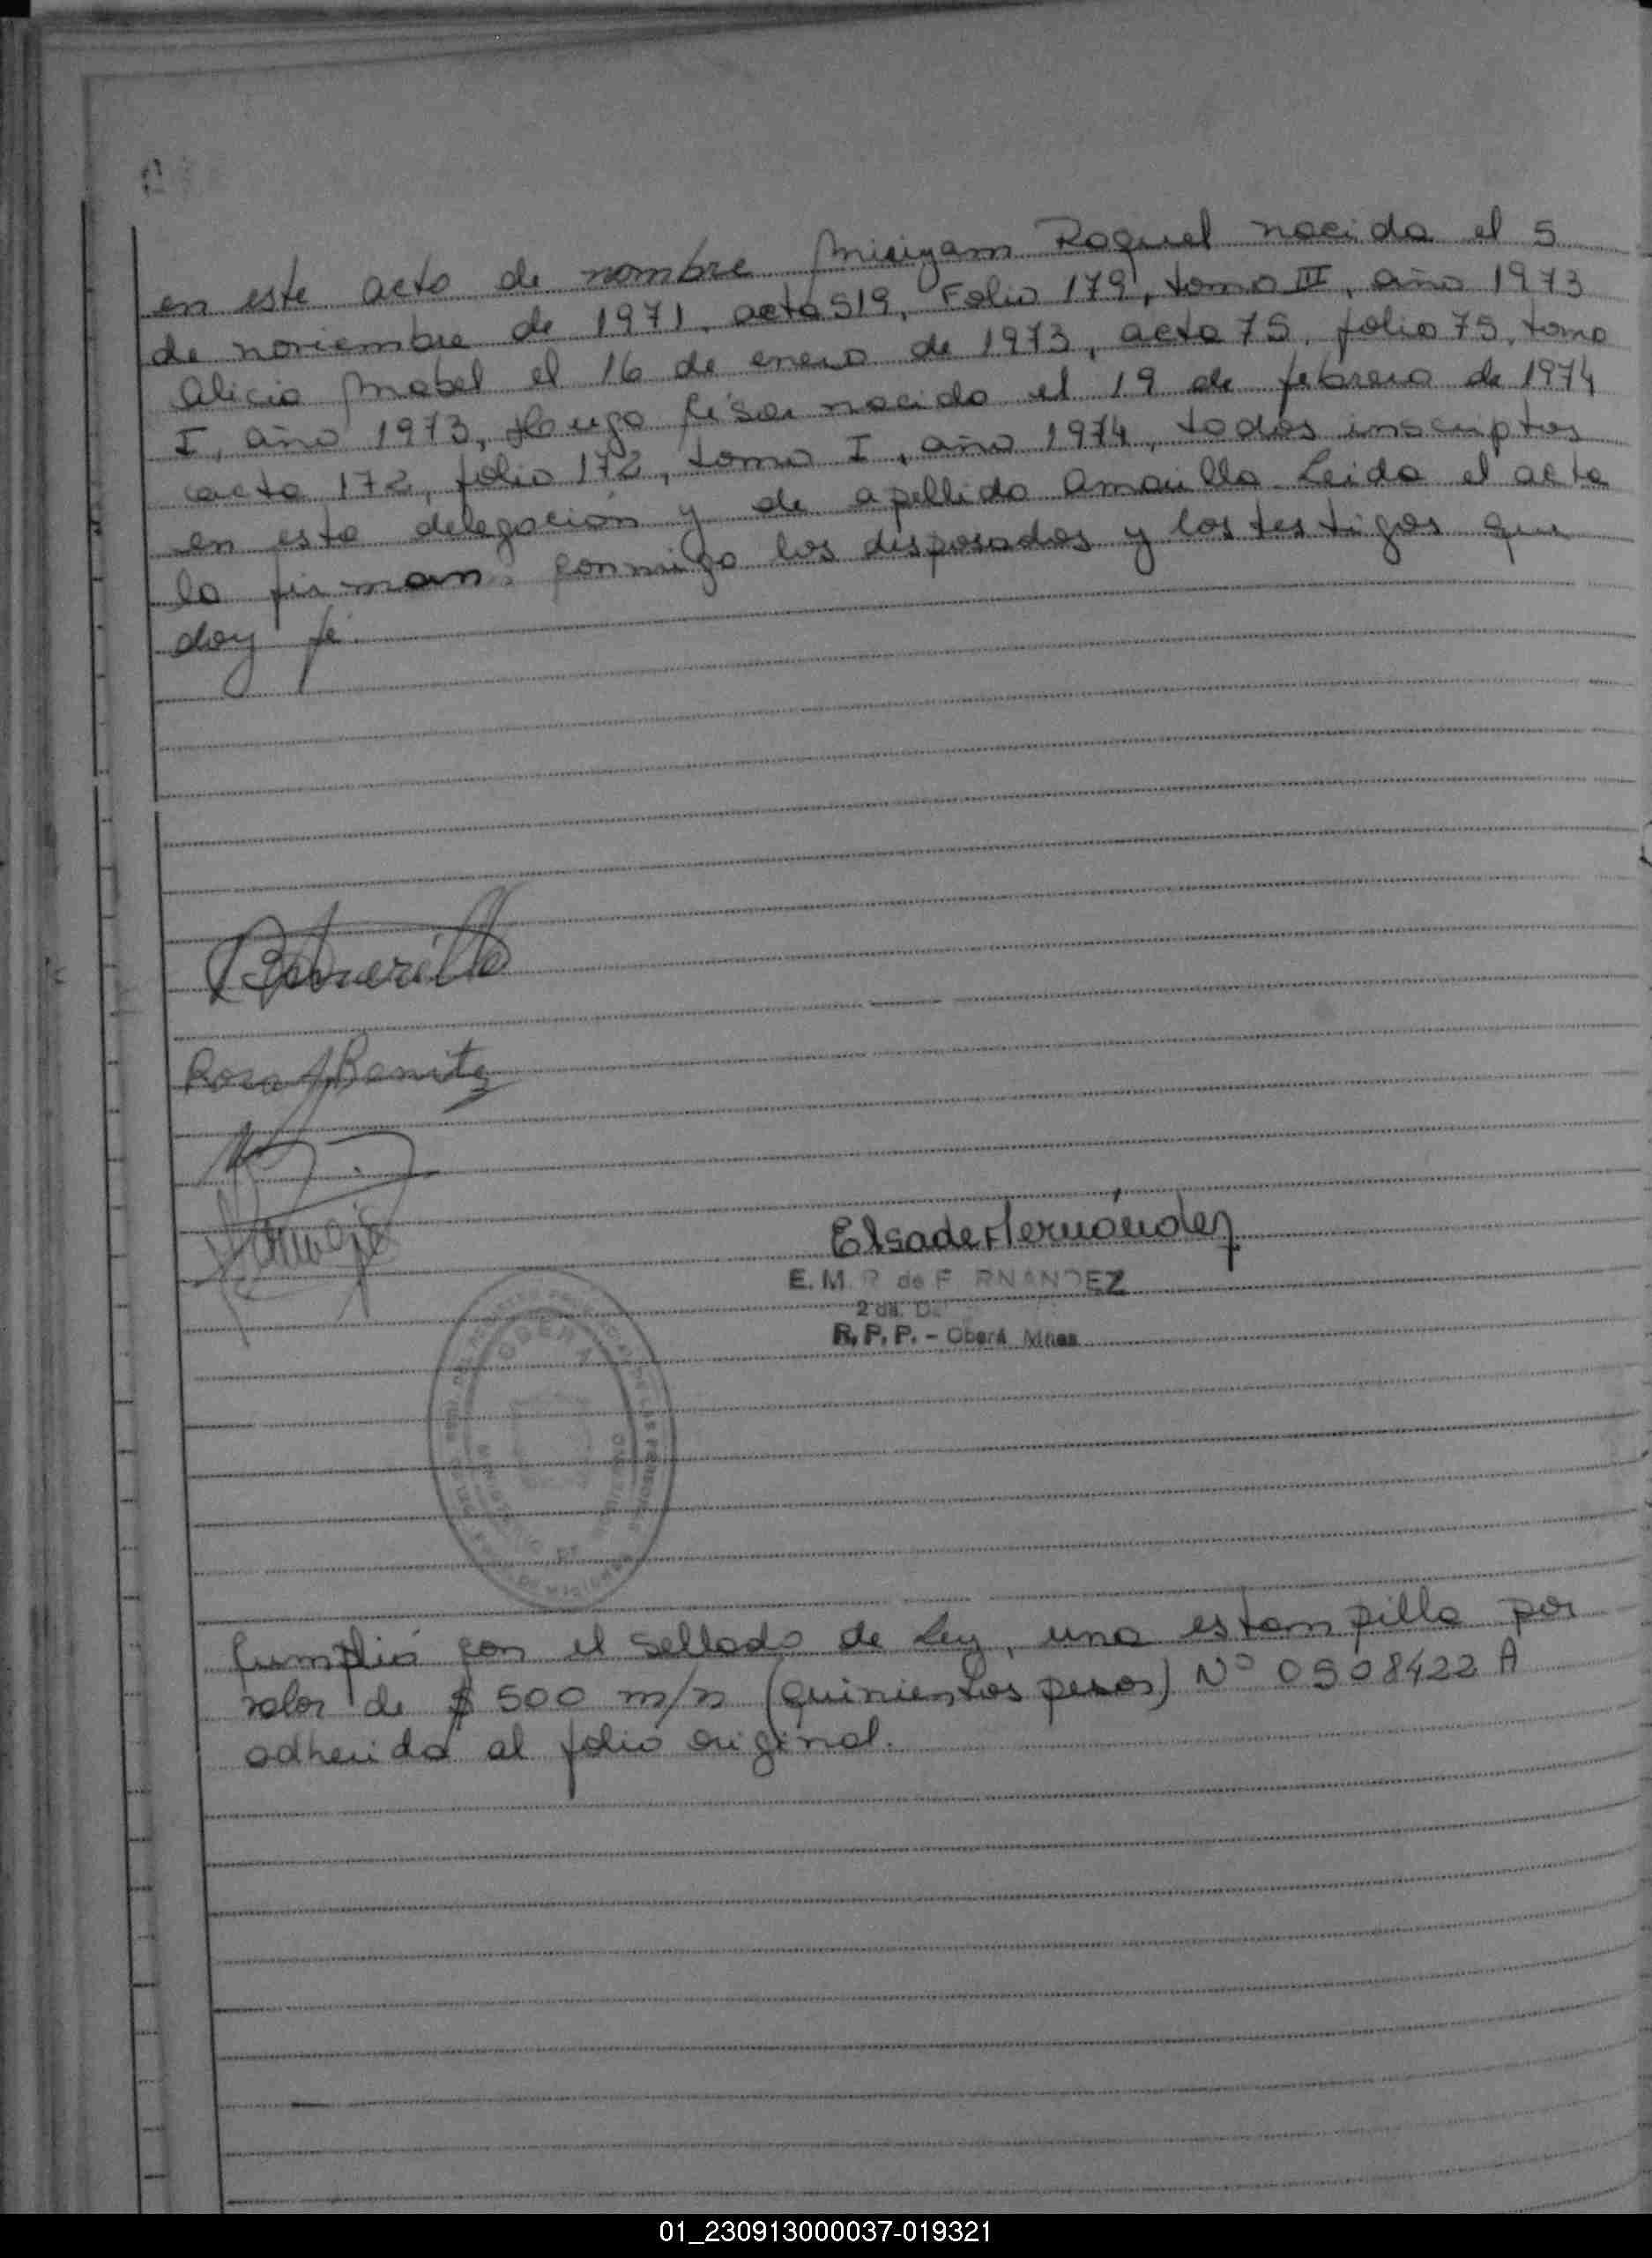 en este acto de nombre Miriyam Raquel nacida el 5
de noviembre de 1971, acta 519, Folio 179, tomo III, año 1973
Alicia Mabel el 16 de enero de 1973, acta 75, folio 75, tomo
I, año 1973, Hugo César nacido el 19 de febrero de 1974
acta 172, folio 172, tomo I, año 1974, todos inscriptos
en esta delegación y de apellido Amarilla. Leida el acta
la firman conmigo los desposados y los testigos que
doy fé.
BAmarilla
Rosa A Benitez
Elsa de Hernández
E. M. R. de F RNANDEZ
2 da. D
R. P. P. - Oberá Mnes
OBERA
Cumplió con el sellado de Ley, una estampilla por
valor de $ 500 m/n (quinientos pesos) Nº 0508422 A
adherida al folio original.
01_230913000037-019321